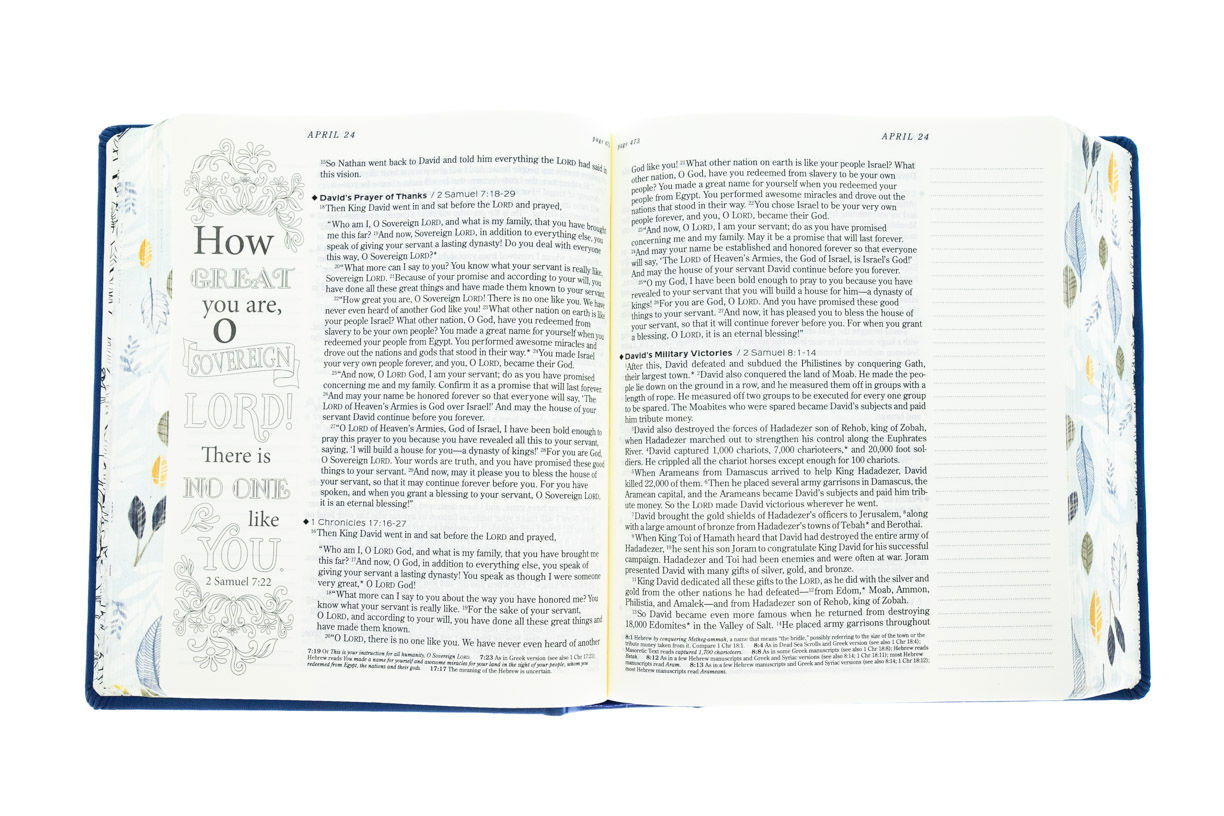 APRIL 24
How
GREAT
you are,
O
SOVEREIGN
LORD!
There is
NO ONE
like
YOU.
2 Samuel 7:22
17So Nathan went back to David and told him everything the LORD had said in
this vision.
◆ David's Prayer of Thanks / 2 Samuel 7:18-29
18Then King David went in and sat before the LORD and prayed,
“Who am I, O Sovereign LORD, and what is my family, that you have brought
me this far? 19And now, Sovereign LORD, in addition to everything else, you
speak of giving your servant a lasting dynasty! Do you deal with everyone
this way, O Sovereign LORD?*
20“What more can I say to you? You know what your servant is really like,
Sovereign LORD. 21Because of your promise and according to your will, you
have done all these great things and have made them known to your servant.
22“How great you are, O Sovereign LORD! There is no one like you. We have
never even heard of another God like you! 23What other nation on earth is like
your people Israel? What other nation, O God, have you redeemed from
slavery to be your own people? You made a great name for yourself when you
redeemed your people from Egypt. You performed awesome miracles and
drove out the nations and gods that stood in their way.* 24You made Israel
your very own people forever, and you, O LORD, became their God.
25“And now, O LORD God, I am your servant; do as you have promised
concerning me and my family. Confirm it as a promise that will last forever.
26And may your name be honored forever so that everyone will say, ‘The
LORD of Heaven's Armies is God over Israel!’ And may the house of your
servant David continue before you forever.
27“O LORD of Heaven's Armies, God of Israel, I have been bold enough to
pray this prayer to you because you have revealed all this to your servant,
saying, ‘I will build a house for you—a dynasty of kings!’ 28For you are God,
O Sovereign LORD. Your words are truth, and you have promised these good
things to your servant. 29And now, may it please you to bless the house of
your servant, so that it may continue forever before you. For you have
spoken, and when you grant a blessing to your servant, O Sovereign LORD,
it is an eternal blessing!”
◆ 1 Chronicles 17:16-27
16Then King David went in and sat before the LORD and prayed,
“Who am I, O LORD God, and what is my family, that you have brought me
this far? 17And now, O God, in addition to everything else, you speak of
giving your servant a lasting dynasty! You speak as though I were someone
very great,* O LORD God!
18“What more can I say to you about the way you have honored me? You
know what your servant is really like. 19For the sake of your servant,
O LORD, and according to your will, you have done all these great things and
have made them known.
20“O LORD, there is no one like you. We have never even heard of another
7:19 Or This is your instruction for all humanity, O Sovereign LORD. 7:23 As in Greek version (see also 1 Chr 17:21);
Hebrew reads You made a name for yourself and awesome miracles for your land in the sight of your people, whom you
redeemed from Egypt, the nations and their gods. 17:17 The meaning of the Hebrew is uncertain.
page 473
APRIL 24
God like you! 21What other nation on earth is like your people Israel? What
other nation, O God, have you redeemed from slavery to be your own
people? You made a great name for yourself when you redeemed your
people from Egypt. You performed awesome miracles and drove out the
nations that stood in their way. 22You chose Israel to be your very own
people forever, and you, O LORD, became their God.
23“And now, O LORD, I am your servant; do as you have promised
concerning me and my family. May it be a promise that will last forever.
24And may your name be established and honored forever so that everyone
will say, ‘The LORD of Heaven's Armies, the God of Israel, is Israel's God!’
And may the house of your servant David continue before you forever.
25“O my God, I have been bold enough to pray to you because you have
revealed to your servant that you will build a house for him—a dynasty of
kings! 26For you are God, O LORD. And you have promised these good
things to your servant. 27And now, it has pleased you to bless the house of
your servant, so that it will continue forever before you. For when you grant
a blessing, O LORD, it is an eternal blessing!”
◆ David's Military Victories / 2 Samuel 8:1-14
1After this, David defeated and subdued the Philistines by conquering Gath,
their largest town.* 2David also conquered the land of Moab. He made the peo-
ple lie down on the ground in a row, and he measured them off in groups with a
length of rope. He measured off two groups to be executed for every one group
to be spared. The Moabites who were spared became David's subjects and paid
him tribute money.
3David also destroyed the forces of Hadadezer son of Rehob, king of Zobah,
when Hadadezer marched out to strengthen his control along the Euphrates
River. 4David captured 1,000 chariots, 7,000 charioteers,* and 20,000 foot sol-
diers. He crippled all the chariot horses except enough for 100 chariots.
5When Arameans from Damascus arrived to help King Hadadezer, David
killed 22,000 of them. 6Then he placed several army garrisons in Damascus, the
Aramean capital, and the Arameans became David's subjects and paid him trib-
ute money. So the LORD made David victorious wherever he went.
7David brought the gold shields of Hadadezer's officers to Jerusalem, 8along
with a large amount of bronze from Hadadezer's towns of Tebah* and Berothai.
9When King Toi of Hamath heard that David had destroyed the entire army of
Hadadezer, 10he sent his son Joram to congratulate King David for his successful
campaign. Hadadezer and Toi had been enemies and were often at war. Joram
presented David with many gifts of silver, gold, and bronze.
11King David dedicated all these gifts to the LORD, as he did with the silver and
gold from the other nations he had defeated—12from Edom,* Moab, Ammon,
Philistia, and Amalek—and from Hadadezer son of Rehob, king of Zobah.
13So David became even more famous when he returned from destroying
18,000 Edomites* in the Valley of Salt. 14He placed army garrisons throughout
8:1 Hebrew by conquering Metheg-ammah, a name that means “the bridle,” possibly referring to the size of the town or the
tribute money taken from it. Compare 1 Chr 18:1. 8:4 As in Dead Sea Scrolls and Greek version (see also 1 Chr 18:4);
Masoretic Text reads captured 1,700 charioteers. 8:8 As in some Greek manuscripts (see also 1 Chr 18:8); Hebrew reads
Betah. 8:12 As in a few Hebrew manuscripts and Greek and Syriac versions (see also 8:14; 1 Chr 18:11); most Hebrew
manuscripts read Aram. 8:13 As in a few Hebrew manuscripts and Greek and Syriac versions (see also 8:14; 1 Chr 18:12);
most Hebrew manuscripts read Arameans.